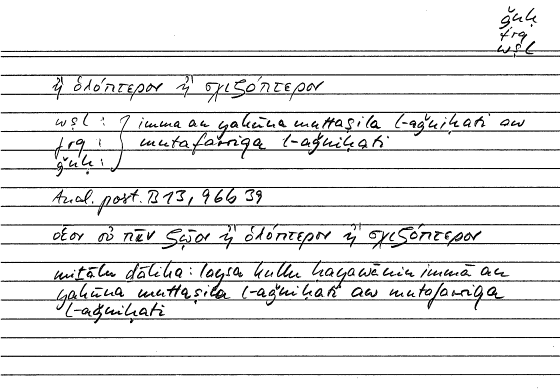 ǧnḥ
frq
wṣl
ἢ ὁλόπτερον ἢ σχιζόπτερον
wṣl : immā an yakūna muttaṣila l-aǧniḥati aw
frq : mutafarriqa l-aǧniḥati
ǧnḥ :
Anal. post. B 13, 96b 39
οἷον οὐ πᾶν ζῷον ἢ ὁλόπτερον ἢ σχιζόπτερον
miṯālu ḏālika : laysa kullu ḥayawānin immā an
yakūna muttaṣila l-aǧniḥati aw mutafarriqa
l-aǧniḥati